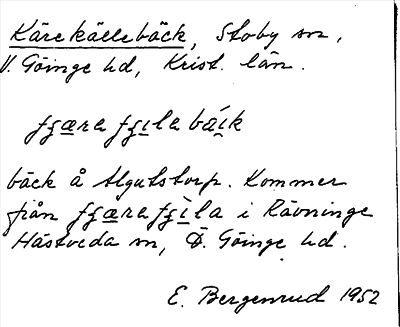 Kärekällebäck, Stoby sn,
V. Göinge hd, Krist. län.
fʒæra fʒıla bäík
bäck å Algutstorp. Kommer
från fʒæra fʒìla i Rävninge
Hästveda sn, Ö. Göinge hd.
E. Bergenrud 1952